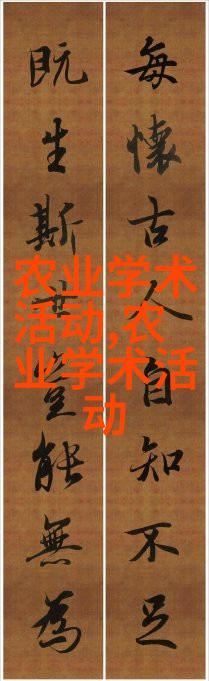 每懷古人自知不足
既生斯世豈能無為
农业学术
活动,农
业学术活
动